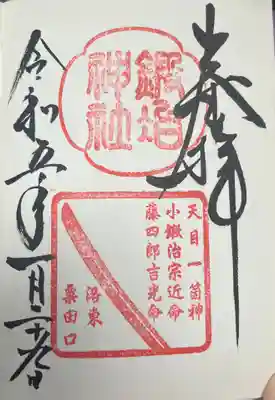 奉拝
鍛冶
神社
天目一箇神
小鍛治宗近命
藤四郎吉光命
洛東
粟田口
令和五年一月二十日